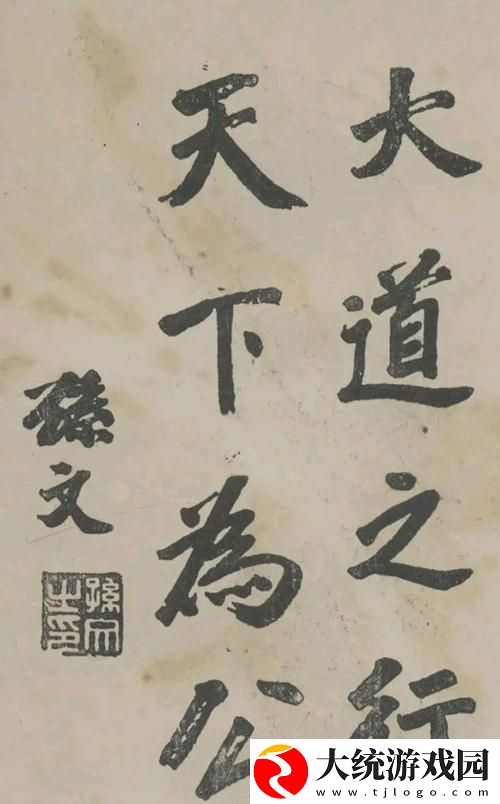 大道之行
天下為公
孫文
孫文之印
大统游戏园
www.tjlogo.com